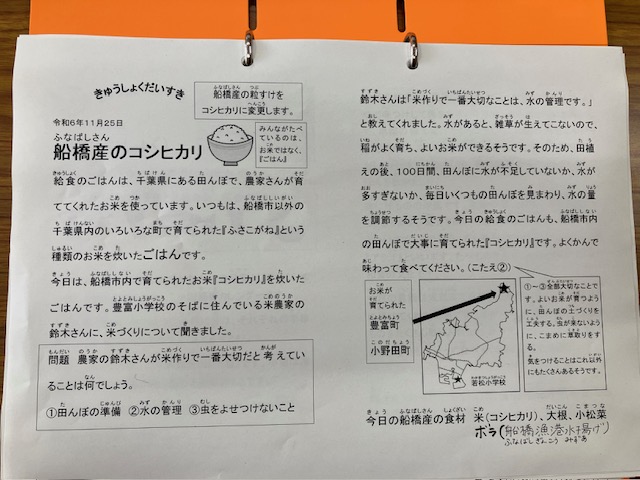 きゅうしょくだいすき
船橋産の粒すけを
コシヒカリに変更します。
令和6年11月25日
船橋産のコシヒカリ
みんながたべ
ているのは、
お米ではなく、
『ごはん』
給食のごはんは、千葉県にある田んぼで、農家さんが育
ててくれたお米を使っています。いつもは、船橋市以外の
千葉県内のいろいろな町で育てられた『ふさこがね』という
種類のお米を炊いたごはんです。
今日は、船橋市内で育てられたお米『コシヒカリ』を炊いた
ごはんです。豊富小学校のそばに住んでいる米農家の
鈴木さんに、米づくりについて聞きました。
問題 農家の鈴木さんが米作りで一番大切だと考えてい
ることは何でしょう。
①田んぼの準備 ②水の管理 ③虫をよせつけないこと
鈴木さんは「米作りで一番大切なことは、水の管理です。」
と教えてくれました。水があると、雑草が生えてこないので、
稲がよく育ち、よいお米ができるそうです。そのため、田植
えの後、100日間、田んぼに水が不足していないか、水が
多すぎないか、毎日いくつもの田んぼを見まわり、水の量
を調節するそうです。今日の給食のごはんも、船橋市内
の田んぼで大事に育てられた『コシヒカリ』です。よくかんで
味わって食べてください。(こたえ②)
お米が
育てられた
豊富町
小野田町
若松小学校
①~③全部大切なことで
す。よいお米が育つよう
に、田んぼの土づくりを
工夫する。虫が来ないよう
に、こまめに草取りをす
る。
気をつけることはこれ以外
にもたくさんあるそうです。
今日の船橋産の食材 米(コシヒカリ)、大根、小松菜
ボラ(船橋漁港水揚げ)
ふなばしぎょこう みずあ